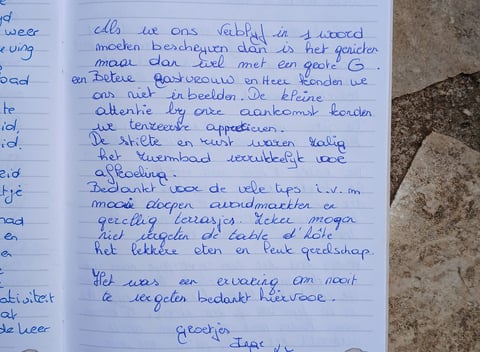 weer
Als we ons verblijf in 1 woord
moeten beschrijven dan is het genieten
maar dan wel met een grote G.
een Betere gastvrouw en Heer konden we
ons niet inbeelden. De kleine
attentie bij onze aankomst konden
we tenzeerste appreciëren.
De stilte en rust waren zalig
het zwembad verrukkelijk voor
afkoeling.
Bedankt voor de vele tips i.v.m
mooie dorpen avondmarkten en
gezellig terrasjes. Zeker mogen
niet vergeten de table d'hôte
het lekkere eten en leuk gezelschap.
Het was een ervaring om nooit
te vergeten bedankt hiervoor.
Groetjes